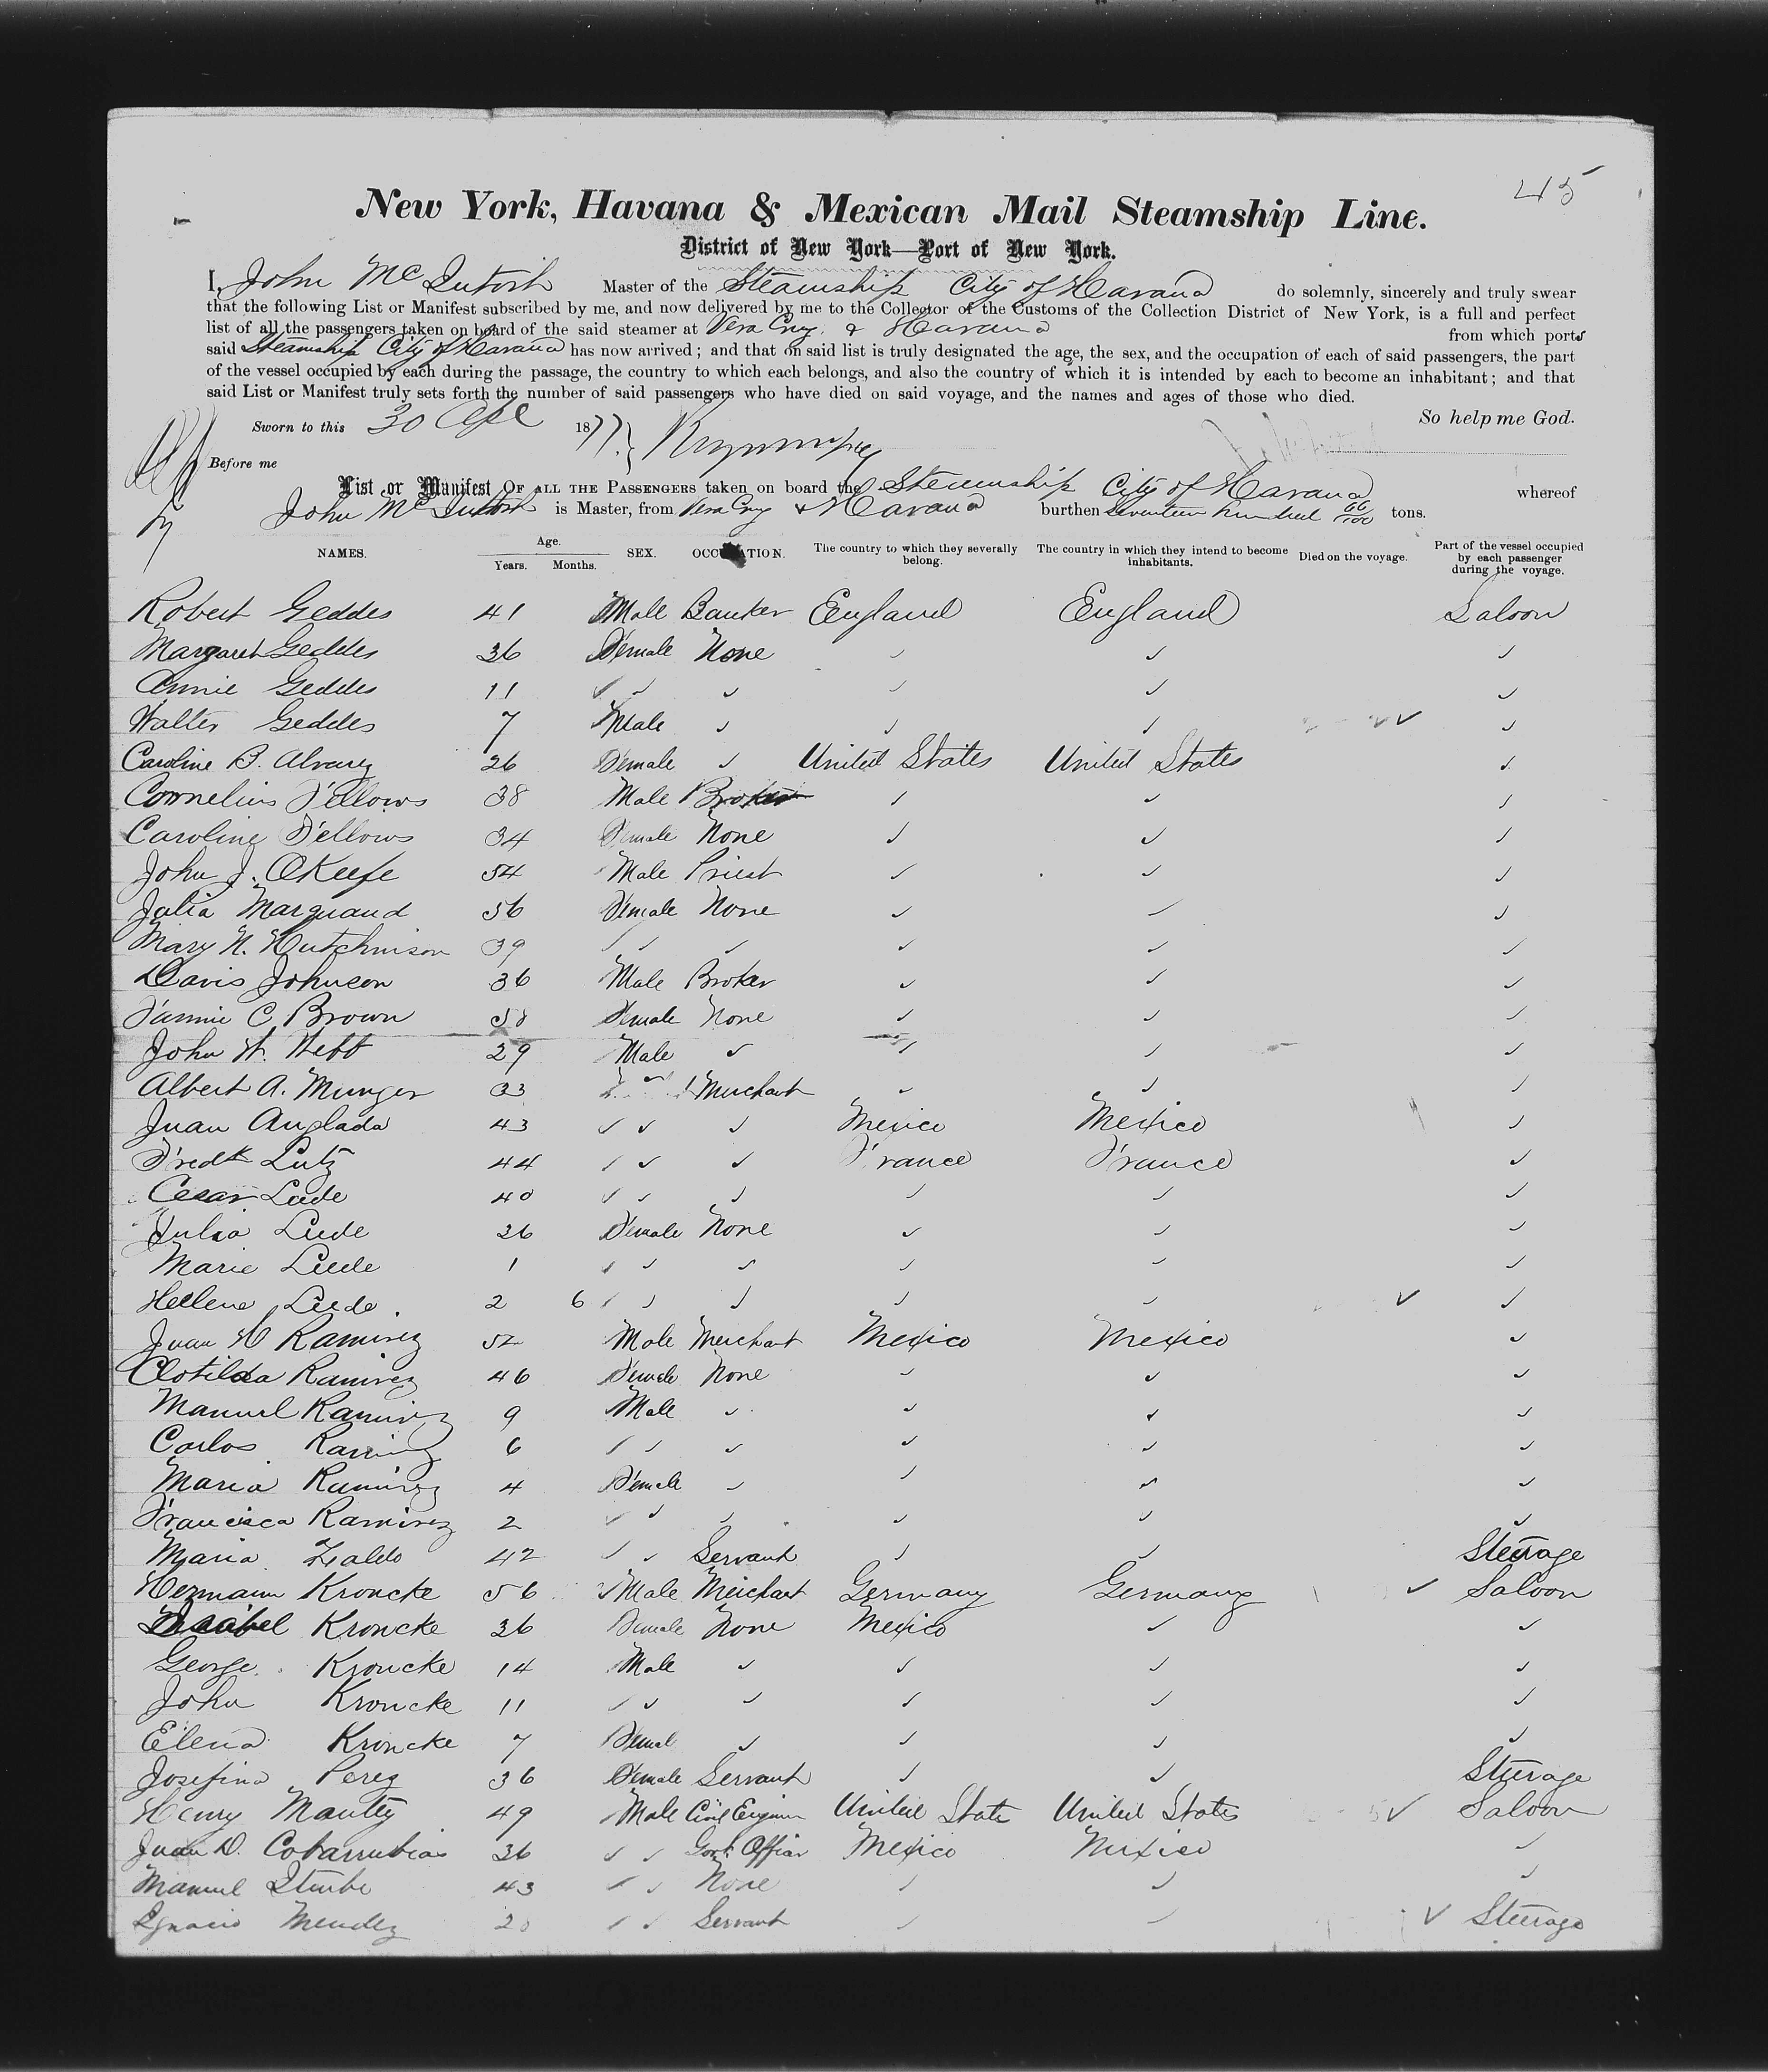 45
New York, Havana & Mexican Mail Steamship Line.
District of New York—Port of New York.
I, John Mc Intosh Master of the Steamship City of Havana do solemnly, sincerely and truly swear
that the following List or Manifest subscribed by me, and now delivered by me to the Collector of the Customs of the Collection District of New York, is a full and perfect
list of all the passengers taken on board of the said steamer at Vera Cruz & Havana from which ports
said Steamship City of Havana has now arrived; and that on said list is truly designated the age, the sex, and the occupation of each of said passengers, the part
of the vessel occupied by each during the passage, the country to which each belongs, and also the country of which it is intended by each to become an inhabitant; and that
said List or Manifest truly sets forth the number of said passengers who have died on said voyage, and the names and ages of those who died.
So help me God.
Sworn to this 30 Apl 1877.
Before me
List or Manifest OF ALL THE PASSENGERS taken on board the Steamship City of Havana whereof
John Mc Intosh is Master, from Vera Cruz & Havana burthen Seventeen hundred 66/100 tons.
NAMES. Age. Years. Months. SEX. OCCUPATION. The country to which they severally belong. The country in which they intend to become inhabitants. Died on the voyage. Part of the vessel occupied by each passenger during the voyage.
Robert Geddes 41 Male Banker England England Saloon
Margaret Geddes 36 Female None ✓ ✓ ✓
Annie Geddes 11 ✓ ✓ ✓ ✓ ✓
Walter Geddes 7 Male ✓ ✓ ✓ ✓
Caroline B. Alvarez 26 Female ✓ United States United States ✓
Cornelius Fellows 38 Male Broker ✓ ✓ ✓
Caroline Fellows 34 Female None ✓ ✓ ✓
John J. OKeefe 54 Male Priest ✓ ✓ ✓
Julia Marquand 56 Female None ✓ ✓ ✓
Mary N. Hutchinson 39 ✓ ✓ ✓ ✓ ✓
Davis Johnson 36 Male Broker ✓ ✓ ✓
Fannie C Brown 58 Female None ✓ ✓ ✓
John W. Webb 29 Male ✓ ✓ ✓ ✓
Albert A. Munger 33 ✓ Merchant ✓ ✓ ✓
Juan Anglada 43 ✓ ✓ ✓ Mexico Mexico ✓
Fredk Lutz 44 ✓ ✓ ✓ France France ✓
Cesar Lude 40 ✓ ✓ ✓ ✓ ✓ ✓
Julia Lude 26 Female None ✓ ✓ ✓
Marie Lude 1 ✓ ✓ ✓ ✓ ✓ ✓
Hellene Lude 2 6 ✓ ✓ ✓ ✓ ✓ ✓
Juan H Ramirez 52 Male Merchant Mexico Mexico ✓
Clotilda Ramirez 46 Female None ✓ ✓ ✓
Manuel Ramirez 9 Male ✓ ✓ ✓ ✓
Carlos Ramirez 6 ✓ ✓ ✓ ✓ ✓ ✓
Maria Ramirez 4 Female ✓ ✓ ✓ ✓
Francisca Ramirez 2 ✓ ✓ ✓ ✓ ✓ ✓
Maria Zaldo 42 ✓ ✓ Servant ✓ ✓ Steerage
Hermann Kroncke 56 Male Merchant Germany Germany ✓ Saloon
Isabel Kroncke 36 Female None Mexico ✓ ✓
George Kroncke 14 Male ✓ ✓ ✓ ✓
John Kroncke 11 ✓ ✓ ✓ ✓ ✓ ✓
Elena Kroncke 7 Femal ✓ ✓ ✓ ✓
Josefina Perez 36 Female Servant ✓ ✓ Steerage
Henry Mautey 49 Male Civil Engineer United State United States ✓ Saloon
Juan D. Cobarrubias 36 ✓ ✓ Govt. Officer Mexico Mexico ✓
Manuel Iturbe 43 ✓ ✓ None ✓ ✓ ✓
Ignacio Mendez 20 ✓ ✓ Servant ✓ ✓ ✓ Steerage